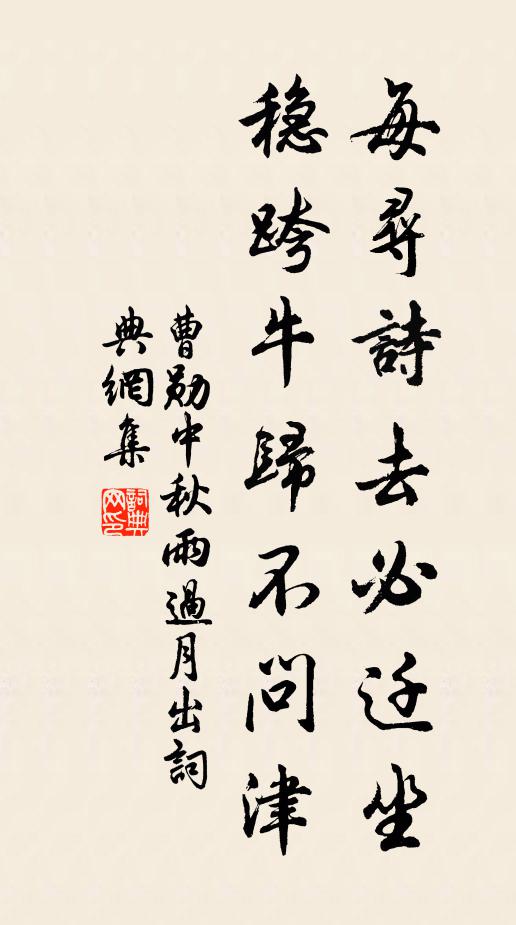 每尋詩去必迂坐
穏跨牛歸不問津
曹勛中秋雨過月出詞
典網集
詞典
网印